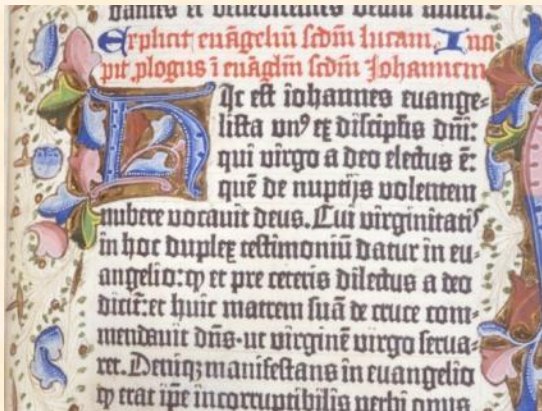 dantes et benedicentes deum amen.
Explicit euāgeliū scdm̄ lucam. Inci
pit ꝓlogus ī euāgliū scdm̄ Johannem
Hic est iohannes euange-
lista vnꝰ ex discipłis dn̄i:
qui virgo a deo electus ē:
quē de nuptijs volentem
nubere vocauit deus. Cui virginitatꝭ
in hoc duplex testimoniū datur in eu-
angelio: ꝙ et pre ceteris dilectus a deo
dicit̄: et huic matrem suā de cruce com-
mendauit dn̄s· ut virginē virgo serua-
ret. Deniqꝫ manifestans in euangelio
ꝙ erat ip̄e incorruptibilis verbi opus